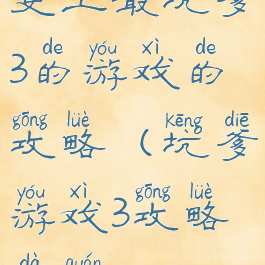 史上最坑爹
de yóu xì de
3的游戏的
gōng lüè kēng diē
攻略(坑爹
yóu xì gōng lüè
游戏3攻略
dà quán